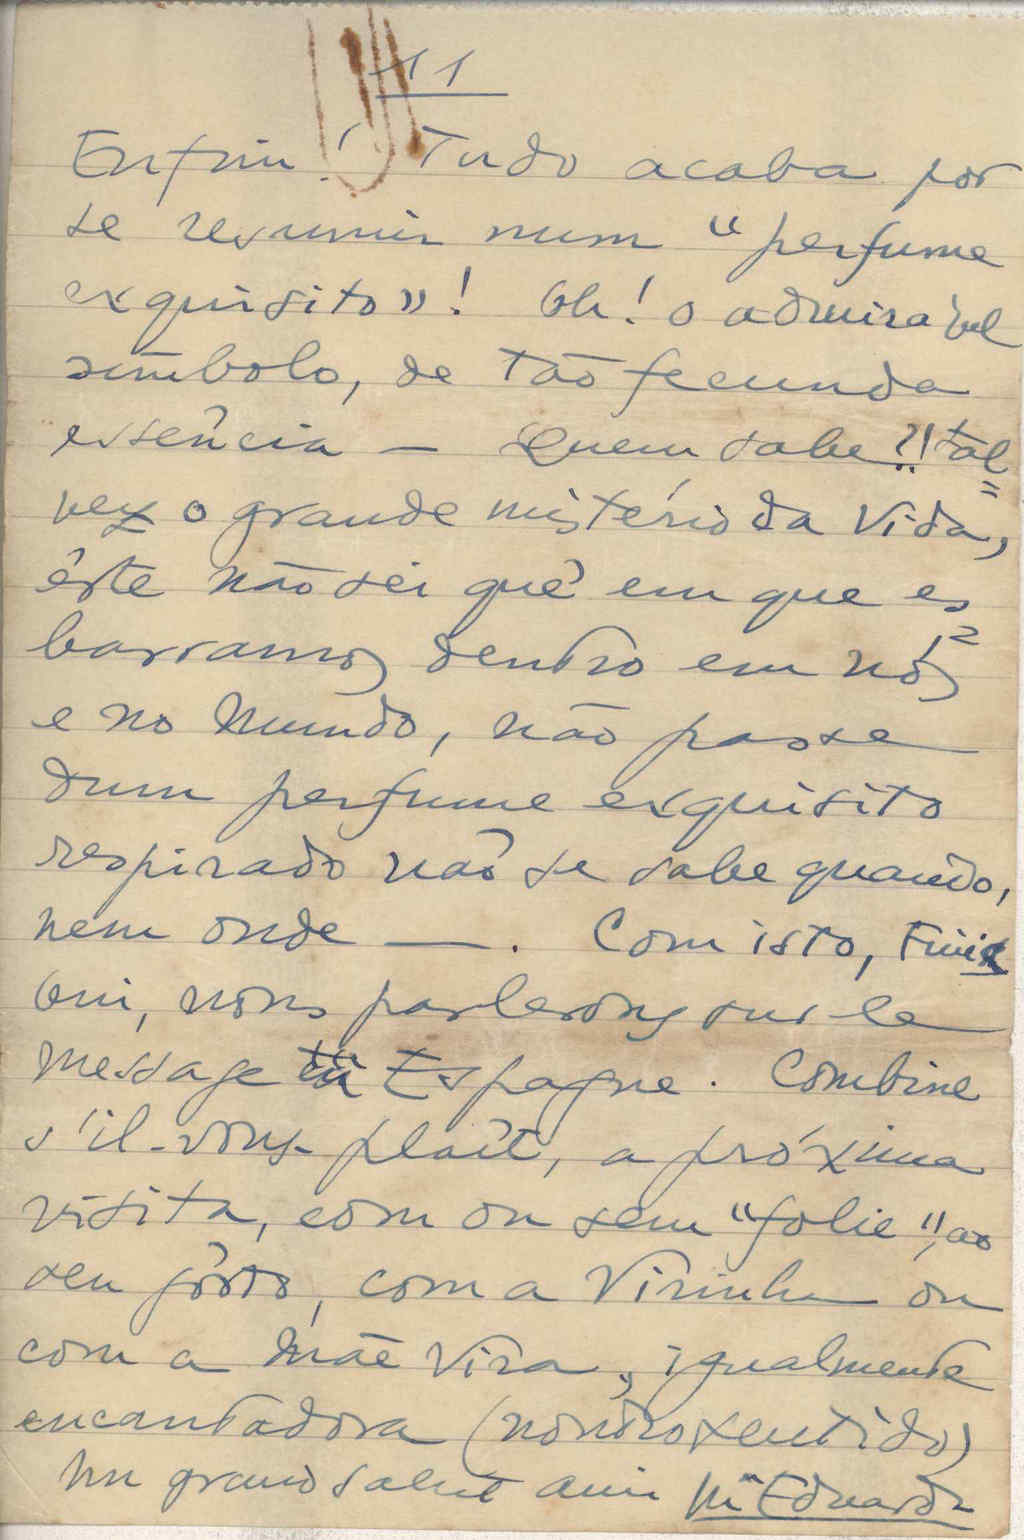 11
Enfim! Tudo acaba por
se resumir num "perfume
exquisito"! Oh! o admirável
símbolo, de tão fecunda
essência — Quem sabe?!! tal
vez o grande mistério da Vida,
êste não sei quê em que es
barramos dentro em nós
e no Mundo, não passe
dum perfume exquisito
respirado não se sabe quando,
nem onde —. Com isto, Finis
Oui, nous parlerons sur le
message Espagne. Combine
s'il-vous-plaît, a próxima
visita, com ou sem "folie", ao
seu gôsto, com a Virinha ou
com a Mãe Vira, igualmente
encantadora (noutro sentido)
Un grand salut ami Mª Eduarda